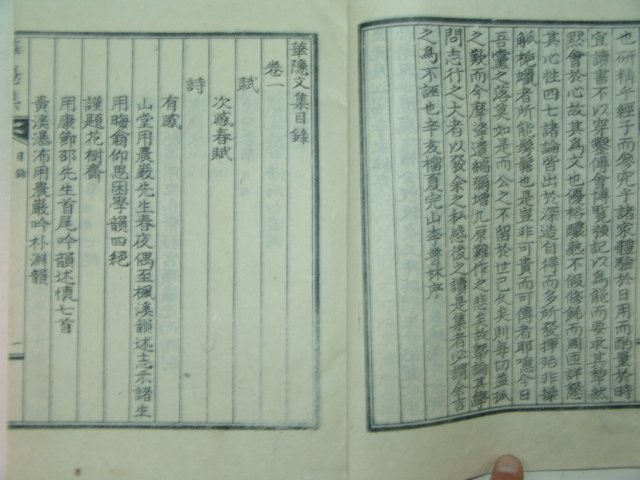 也研精乎經子而泉穿乎諸家體驗於日用而酌量於時
宜讀書不以穿鑿傅會博覽强記以爲能而要求其犂然
默會於心故其爲文也優裕醲熟不假修飾而周匝詳懇
其心性四七諸論皆出於深造自得而多所發揮殆非操
觚梔蠟者所能髣髴也是豈非可貴而可傳者耶噫今日
吾黨之落莫如是而公之不留於世已久矣則每切益孤
之歎而今摩挲遺編彌增九原難作之悲矣故畧論其學
問志行之大者以發余之私感後之讀是集者必謂余言
之爲不誣也辛亥榴夏完山李 序
華隱文集目錄
卷一
賦
次感春賦
詩
有感
山堂用農巖先生春夜偶至楓溪韻述志示諸生
用晦翁仰思困學韻四絕
謹題花樹齋
用康節邵先生首尾吟韻述懷七首
黃溪瀑沛用農巖吟朴淵韻
目錄
一